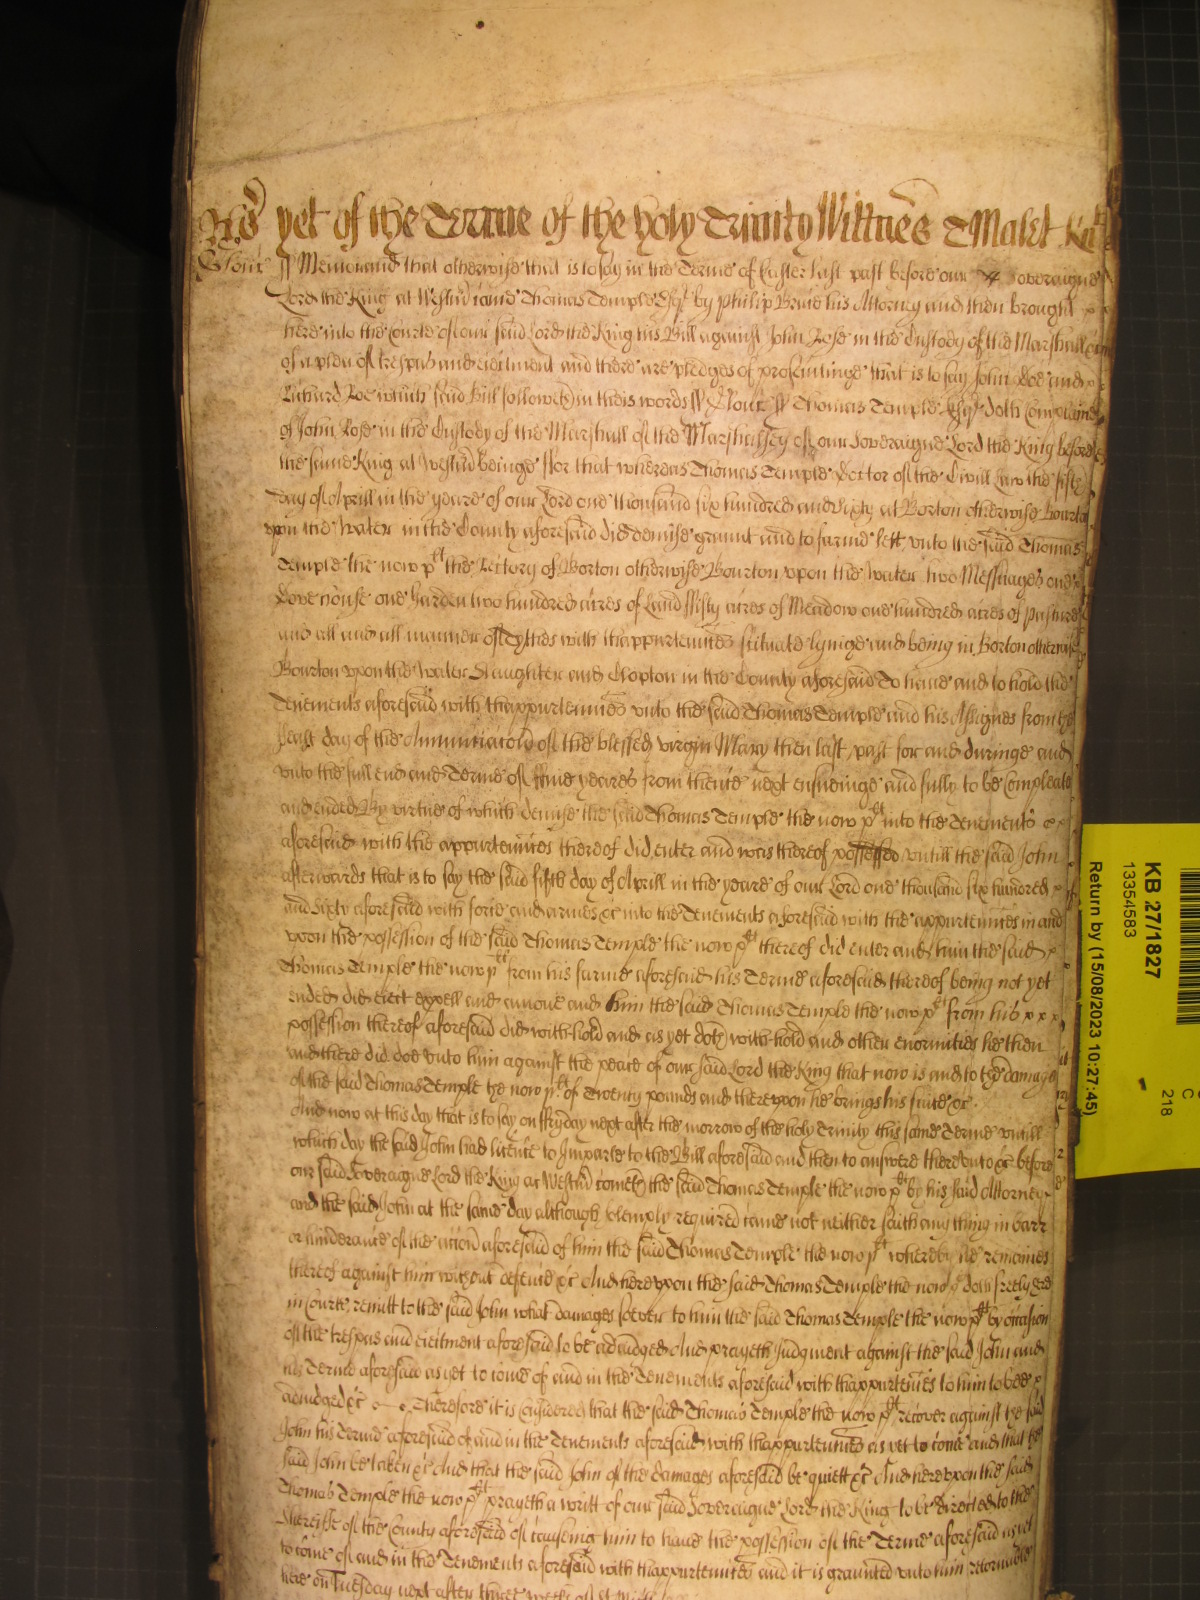 As yet of the Terme of the holy Trinity Wittnes T Malet Kt
Glouc ss Memorand that otherwise that is to say in the Terme of Easter last past before our Soveraigne
Lord the King at Westm came Thomas Temple Esq by Philip Brine his Attorney and then brought
here into the Courte of our said Lord the King his Bill against John Rose in the Custody of the Marshall &c
of a plea of trespas and eiectment and there are pledges of prosecutinge that is to say John Doe and
Richard Roe which said Bill followeth in theis words ss Glouc ss Thomas Temple Esq doth Complaine
of John Rose in the Custody of the Marshall of the Marshalsey of our Soveraigne Lord the King before
the same King at Westm beinge ffor that whereas Thomas Temple Doctor of the Civill Law the fifth
day of Aprill in the yeare of our Lord one thousand six hundred and sixty at Borton otherwise Bourton
upon the Water in the County aforesaid did demise graunt and to farme lett unto the said Thomas
Temple the now plt the Rectory of Borton otherwise Bourton upon the Water two Messuages one
Dovehouse one Garden two hundred acres of Land ffifty acres of Meadow one hundred acres of Pasture
and all and all manner of Tythes with thappurtennces situate lyinge and being in Borton otherwise
Bourton upon the Water Slaughter and Clopton in the County aforesaid To have and to hold the
Tenements aforesaid with thappurtennces unto the said Thomas Temple and his Assignes from the
ffeast day of the Annunciacon of the blessed virgin Mary then last past for and duringe and
unto the full end and Terme of ffive yeares from thence next ensueinge and fully to be Compleate
and ended By virtue of which demise the said Thomas Temple the now plt into the Tenements
aforesaid with the appurtennces thereof did enter and was thereof possessed untill the said John
afterwards that is to say the said fifth day of Aprill in the yeare of our Lord one thousand six hundred
and sixty aforesaid with force and armes &c into the Tenements aforesaid with the appurtennces in and
upon the possession of the said Thomas Temple the now plt thereof did enter and him the said
Thomas Temple the now plt from his farme aforesaid his Terme aforesaid thereof being not yet
ended did eiect expell and amove and him the said Thomas Temple the now plt from his x x x
possession thereof aforesaid did with-hold and as yet doth with-hold and other enormities he then
and there did doe unto him against the peace of our said Lord the King that now is and to the damage
of the said Thomas Temple the now plt of Twenty pounds and thereupon he brings his suite &c
And now at this day that is to say on ffryday next after the morrow of the holy Trinity this same Terme untill
which day the said John had licence to Imparle to the Bill aforesaid and then to answere thereunto &c before
our said Soveraigne Lord the King at Westm cometh the said Thomas Temple the now plt by his said Attorney
and the said John at the same day although solemply required came not neither saith any thing in barr
or hinderance of the accon aforesaid of him the said Thomas Temple the now plt whereby he remaines
thereof against him without defence &c And hereupon the said Thomas Temple the now plt doth freely here
in Courte remitt to the said John what damages soever to him the said Thomas Temple the now plt by occasion
of the trespas and eiectment aforesaid to be adiudged And prayeth Judgment against the said John and
his Terme aforesaid as yet to come of and in the Tenements aforesaid with thappurtennces to him to bee
adiudged &c Therefore it is considered that the said Thomas Temple the now plt recover against the said
John his Terme aforesaid of and in the Tenements aforesaid with thappurtennces as yet to come and that the
said John be taken &c And that the said John of the damages aforesaid be quiett &c And hereupon the said
Thomas Temple the now plt prayeth a writt of our said Soveraigne Lord the King to be directed to the
Sheriffe of the County aforesaid of causeing him to have the possession of the Terme aforesaid as yet
to come of and in the Tenements aforesaid with thappurtennces and it is graunted unto him retornable
here on Tuesday next after three weekes of
KB 27/1827
13354583
Return by (15/08/2023 10:27:45)
C
218